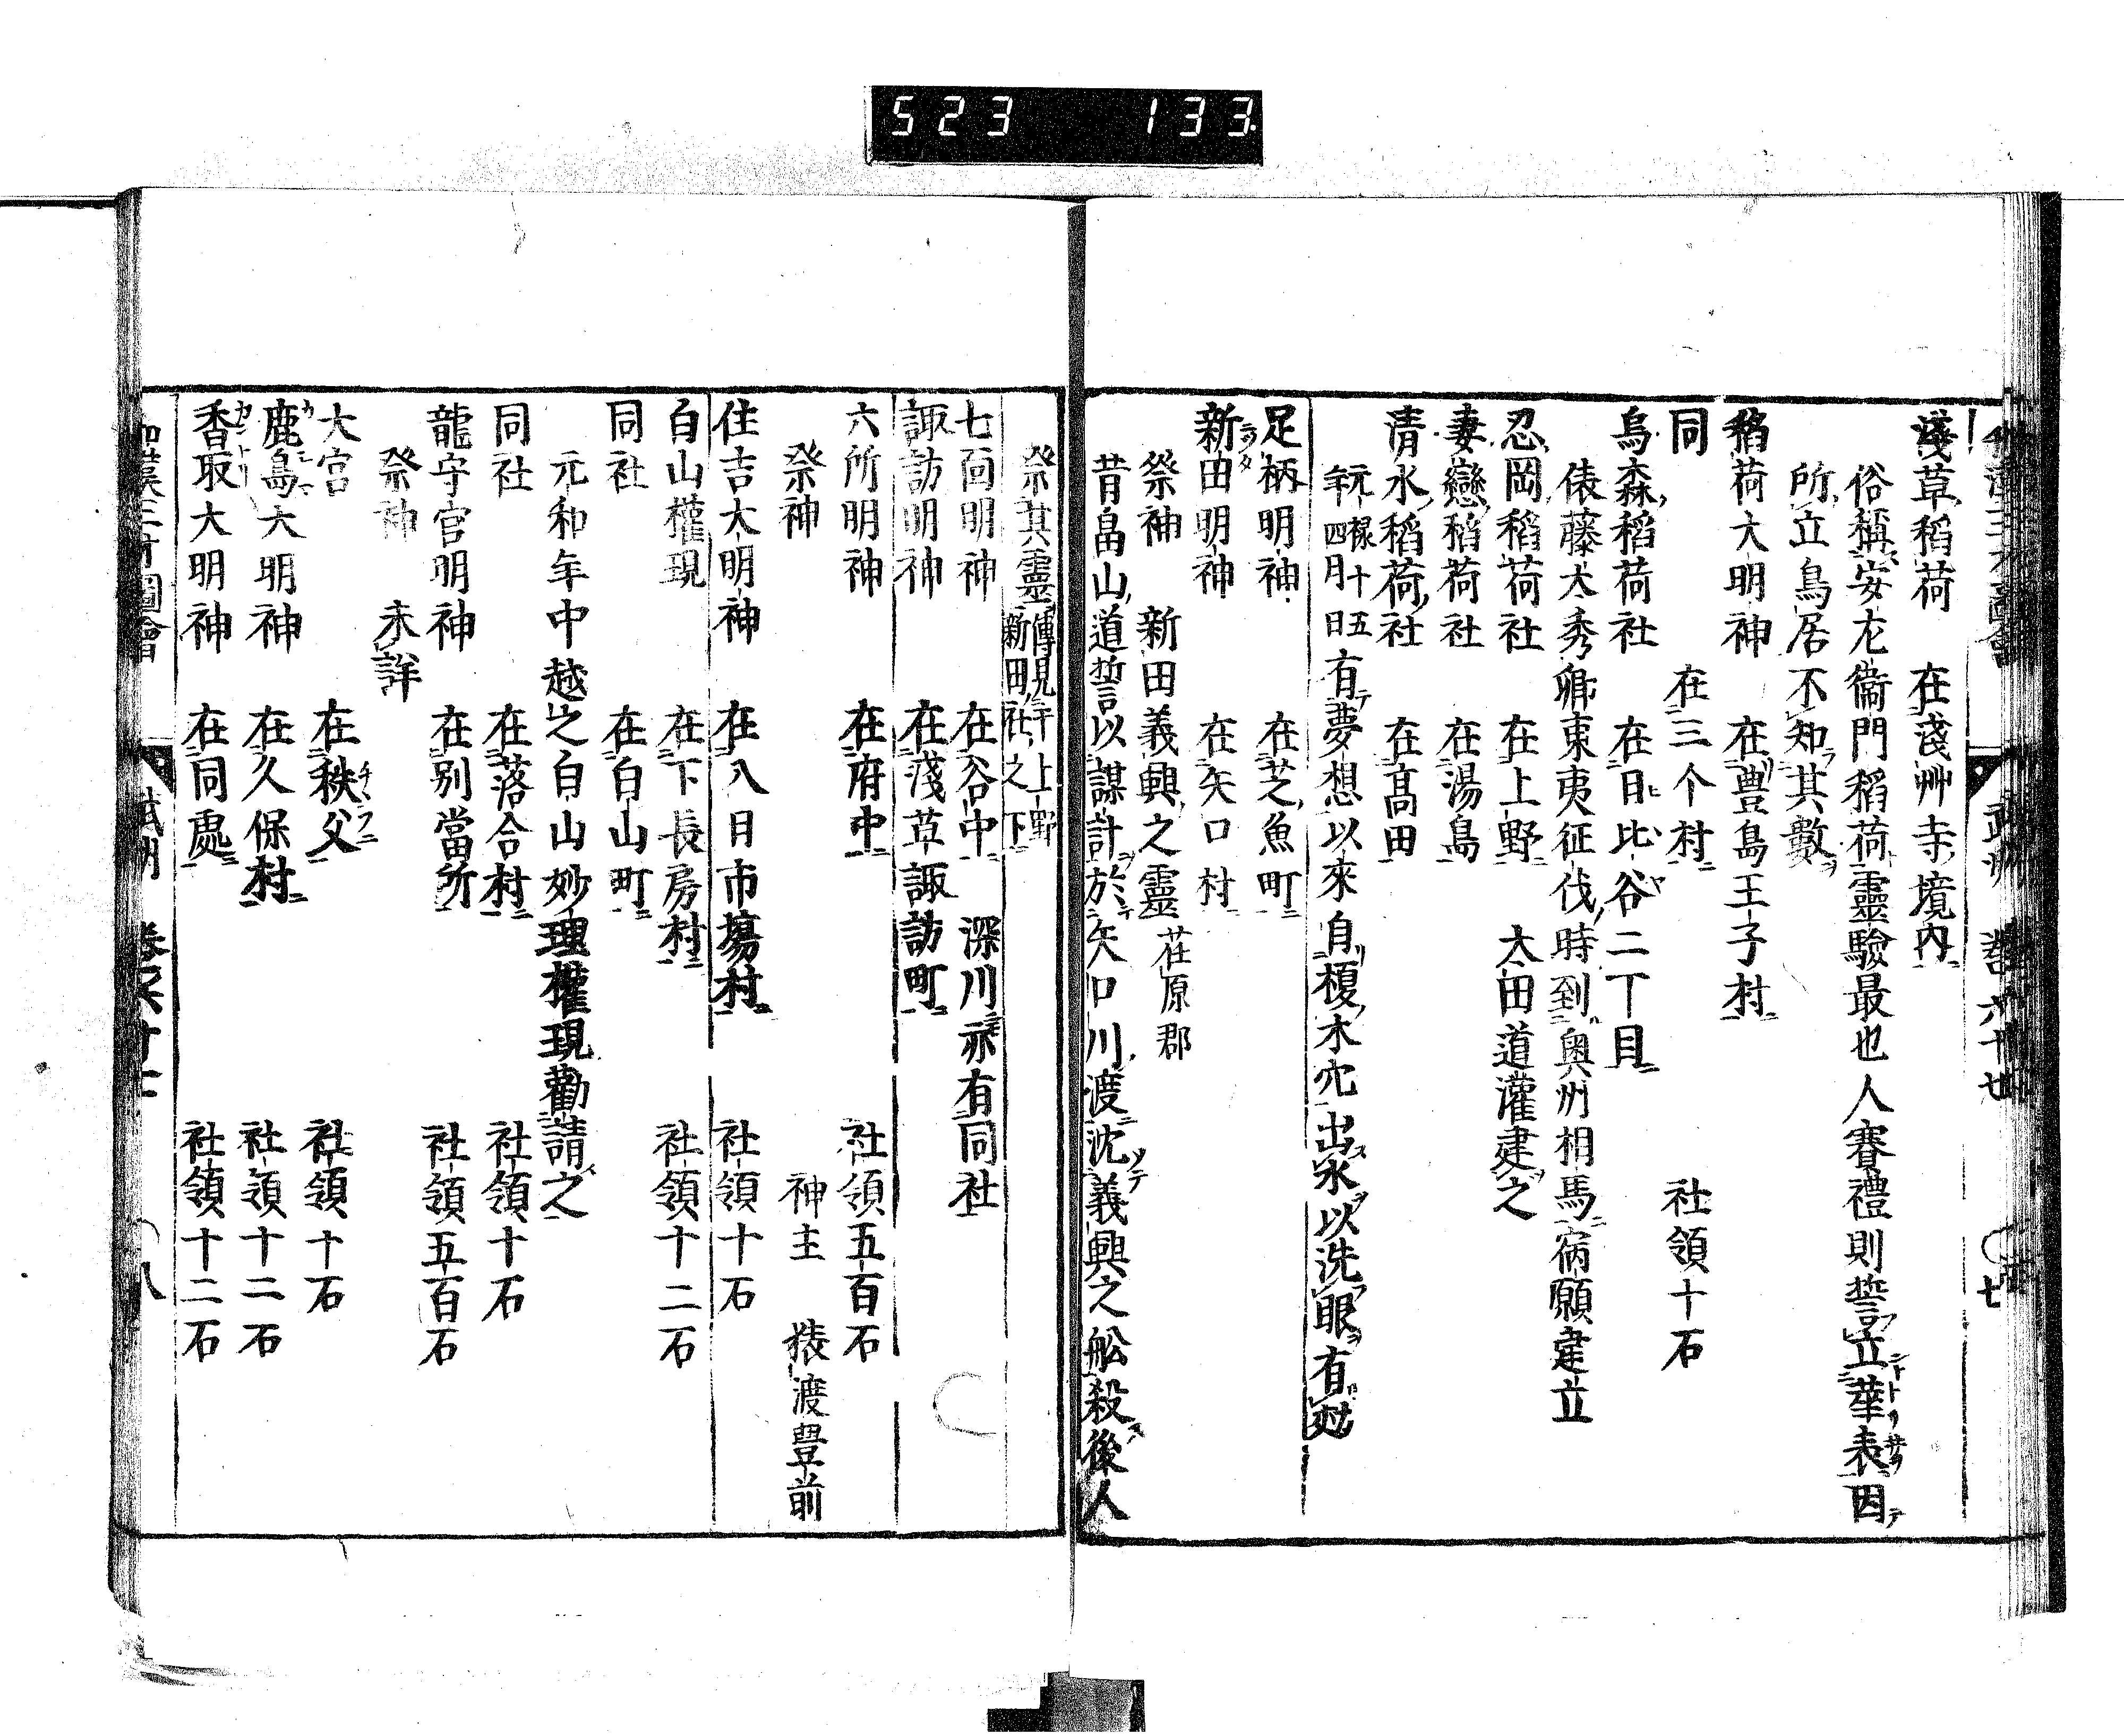 523 133
淺草稻荷 在淺艸寺境內
俗稱安左衞門稻荷靈驗最也人賽禮則誓立華表因
所立鳥居不知其數
稻荷大明神 在豊島王子村
同 在三个村 社領十石
烏森稻荷社 在日比谷二丁目
俵藤太秀郷東夷征伐時到奥州相馬宿願建立
忍岡稻荷社 在上野 太田道灌建之
妻戀稻荷社 在湯島
清水稻荷社 在髙田
元祿十五年四月日有夢想以來自榎木穴出水以洗眼有効
足柄明神 在芝魚町
新田明神 在矢口村
祭神 新田義興之靈 荏原郡
昔畠山道誓以謀計於矢口川渡沈義興之舩殺後人
祭其靈 傳見于上野新田社之下
七面明神 在谷中 深川亦有同社
諏訪明神 在淺草諏訪町
六所明神 在府中 社領五百石
祭神 神主 猿渡豊前
住吉大明神 在八日市塲村 社領十石
白山權現 在下長房村 社領十二石
同社 在白山町
元和年中越之白山妙理權現勸請之
同社 在落合村 社領十石
龍守宮明神 在别當所 社領五百石
祭神 未詳
大宮 在秩父 社領十石
鹿島大明神 在久保村 社領十二石
香取大明神 在同處 社領十二石